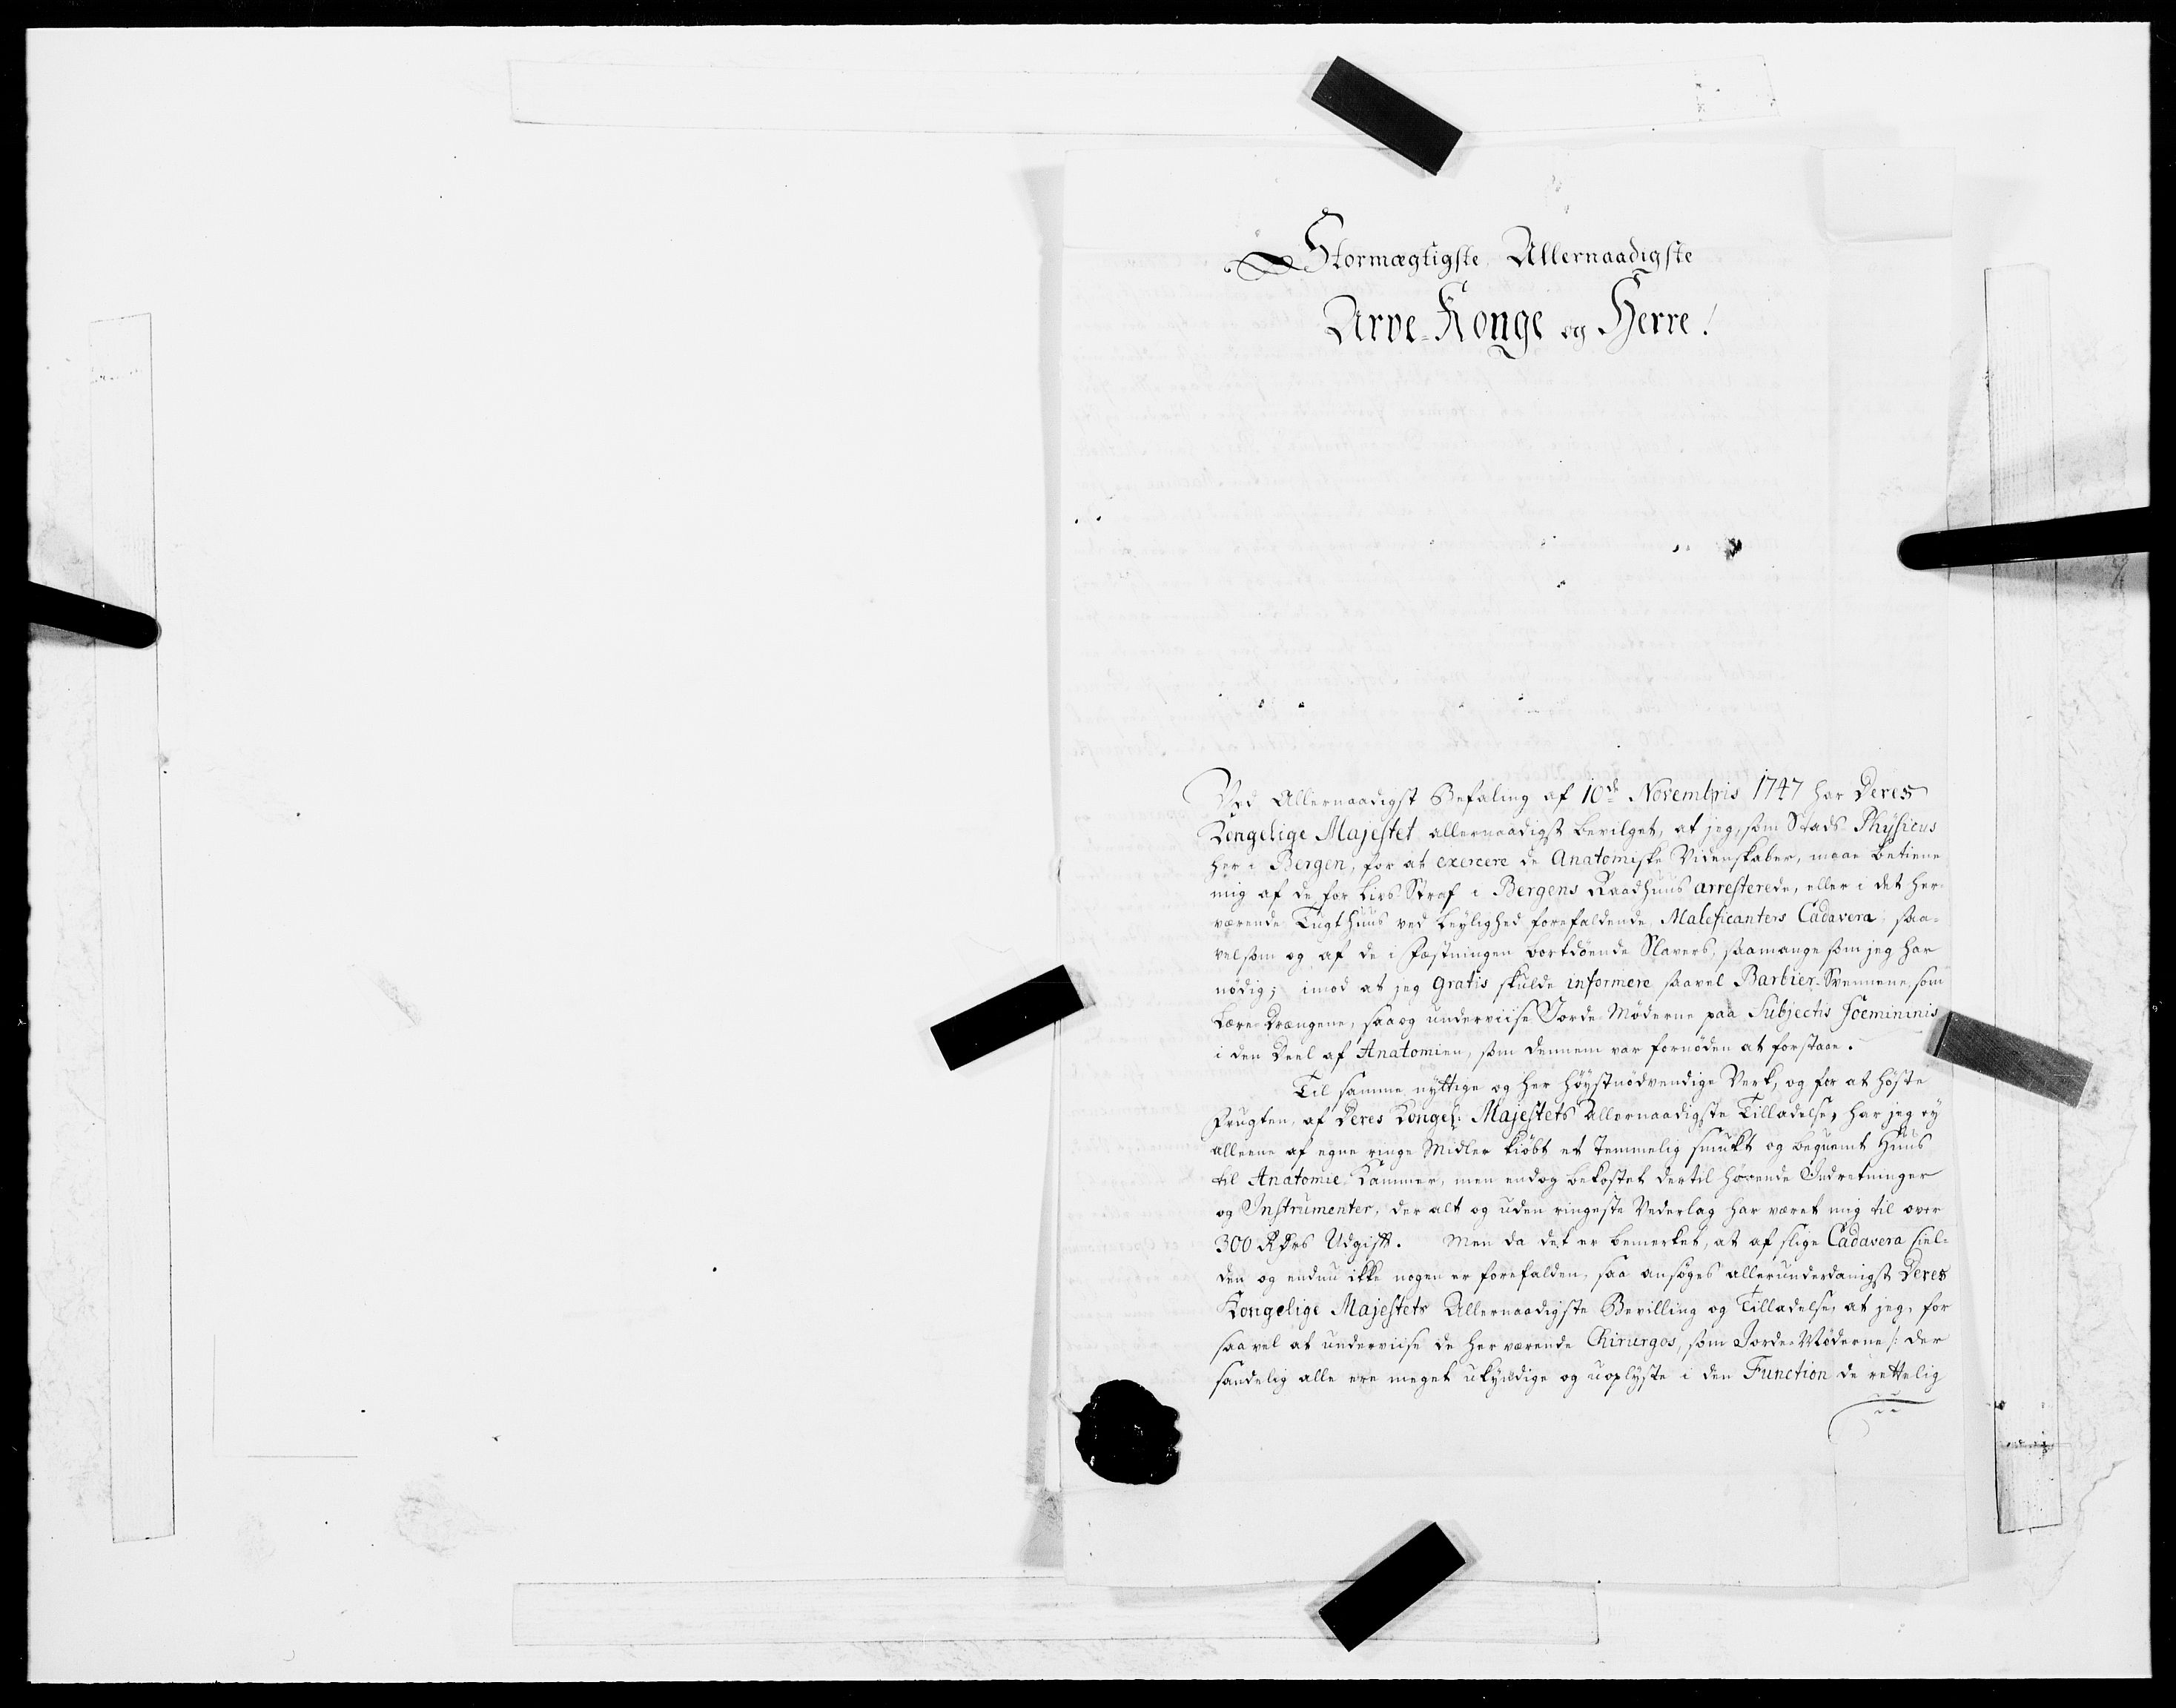 Stormægtigste Allernaadigste
Arve-Konge og Herre!
Ved Allernaadigst Befaling af 10de Novembris 1747 har Deres
Kongelige Majestet allernaadigst bevilget, at jeg, som Stads Physicus
her i Bergen, for at exercere de Anatomiske Videnskaber, maae betiene
mig af de for Livs Straf i Bergens Raadhuus arresterede, eller i det her-
værende Tugthuus ved beylighed forefaldende Maleficanters Cadavera, saa-
velsom og af de i Fæstningen bortdöende Slavers, saamange som jeg har
nödig; imod at jeg gratis skulde informere saavel Barbier-Svennene, som
Lære-Drængene, saa og underviise Jorde-Möderne paa Subjectis Foemininis
i den Deel af Anatomien, som dennem var fornöden at forstaae.
Til samme nyttige og her höystnödvendige Verk, og for at höste
Frugten, af Deres Kongel: Majestets Allernaadigste Tilladelse, har jeg ey
alleene af egne ringe Midler kiöbt et temmelig smukt og beqvemt Huus
til Anatomie-Kammer, men endog bekostet dertil hörende Indretninger
og Instrumenter, der alt og uden ringeste Vederlag har været mig til over
300 Rdrs Udgift. Men da det er bemerket, at af slige Cadavera siel-
den og endnu ikke nogen er forefalden, saa ansöges allerunderdanigst Deres
Kongelige Majestets Allernaadigste Bevilling og Tilladelse, at jeg, for
saavel at underviise de herværende Chirurgos, som Jorde-Möderne /: der
sandelig alle ere meget ukyndige og uoplyste i den Function de rettelig